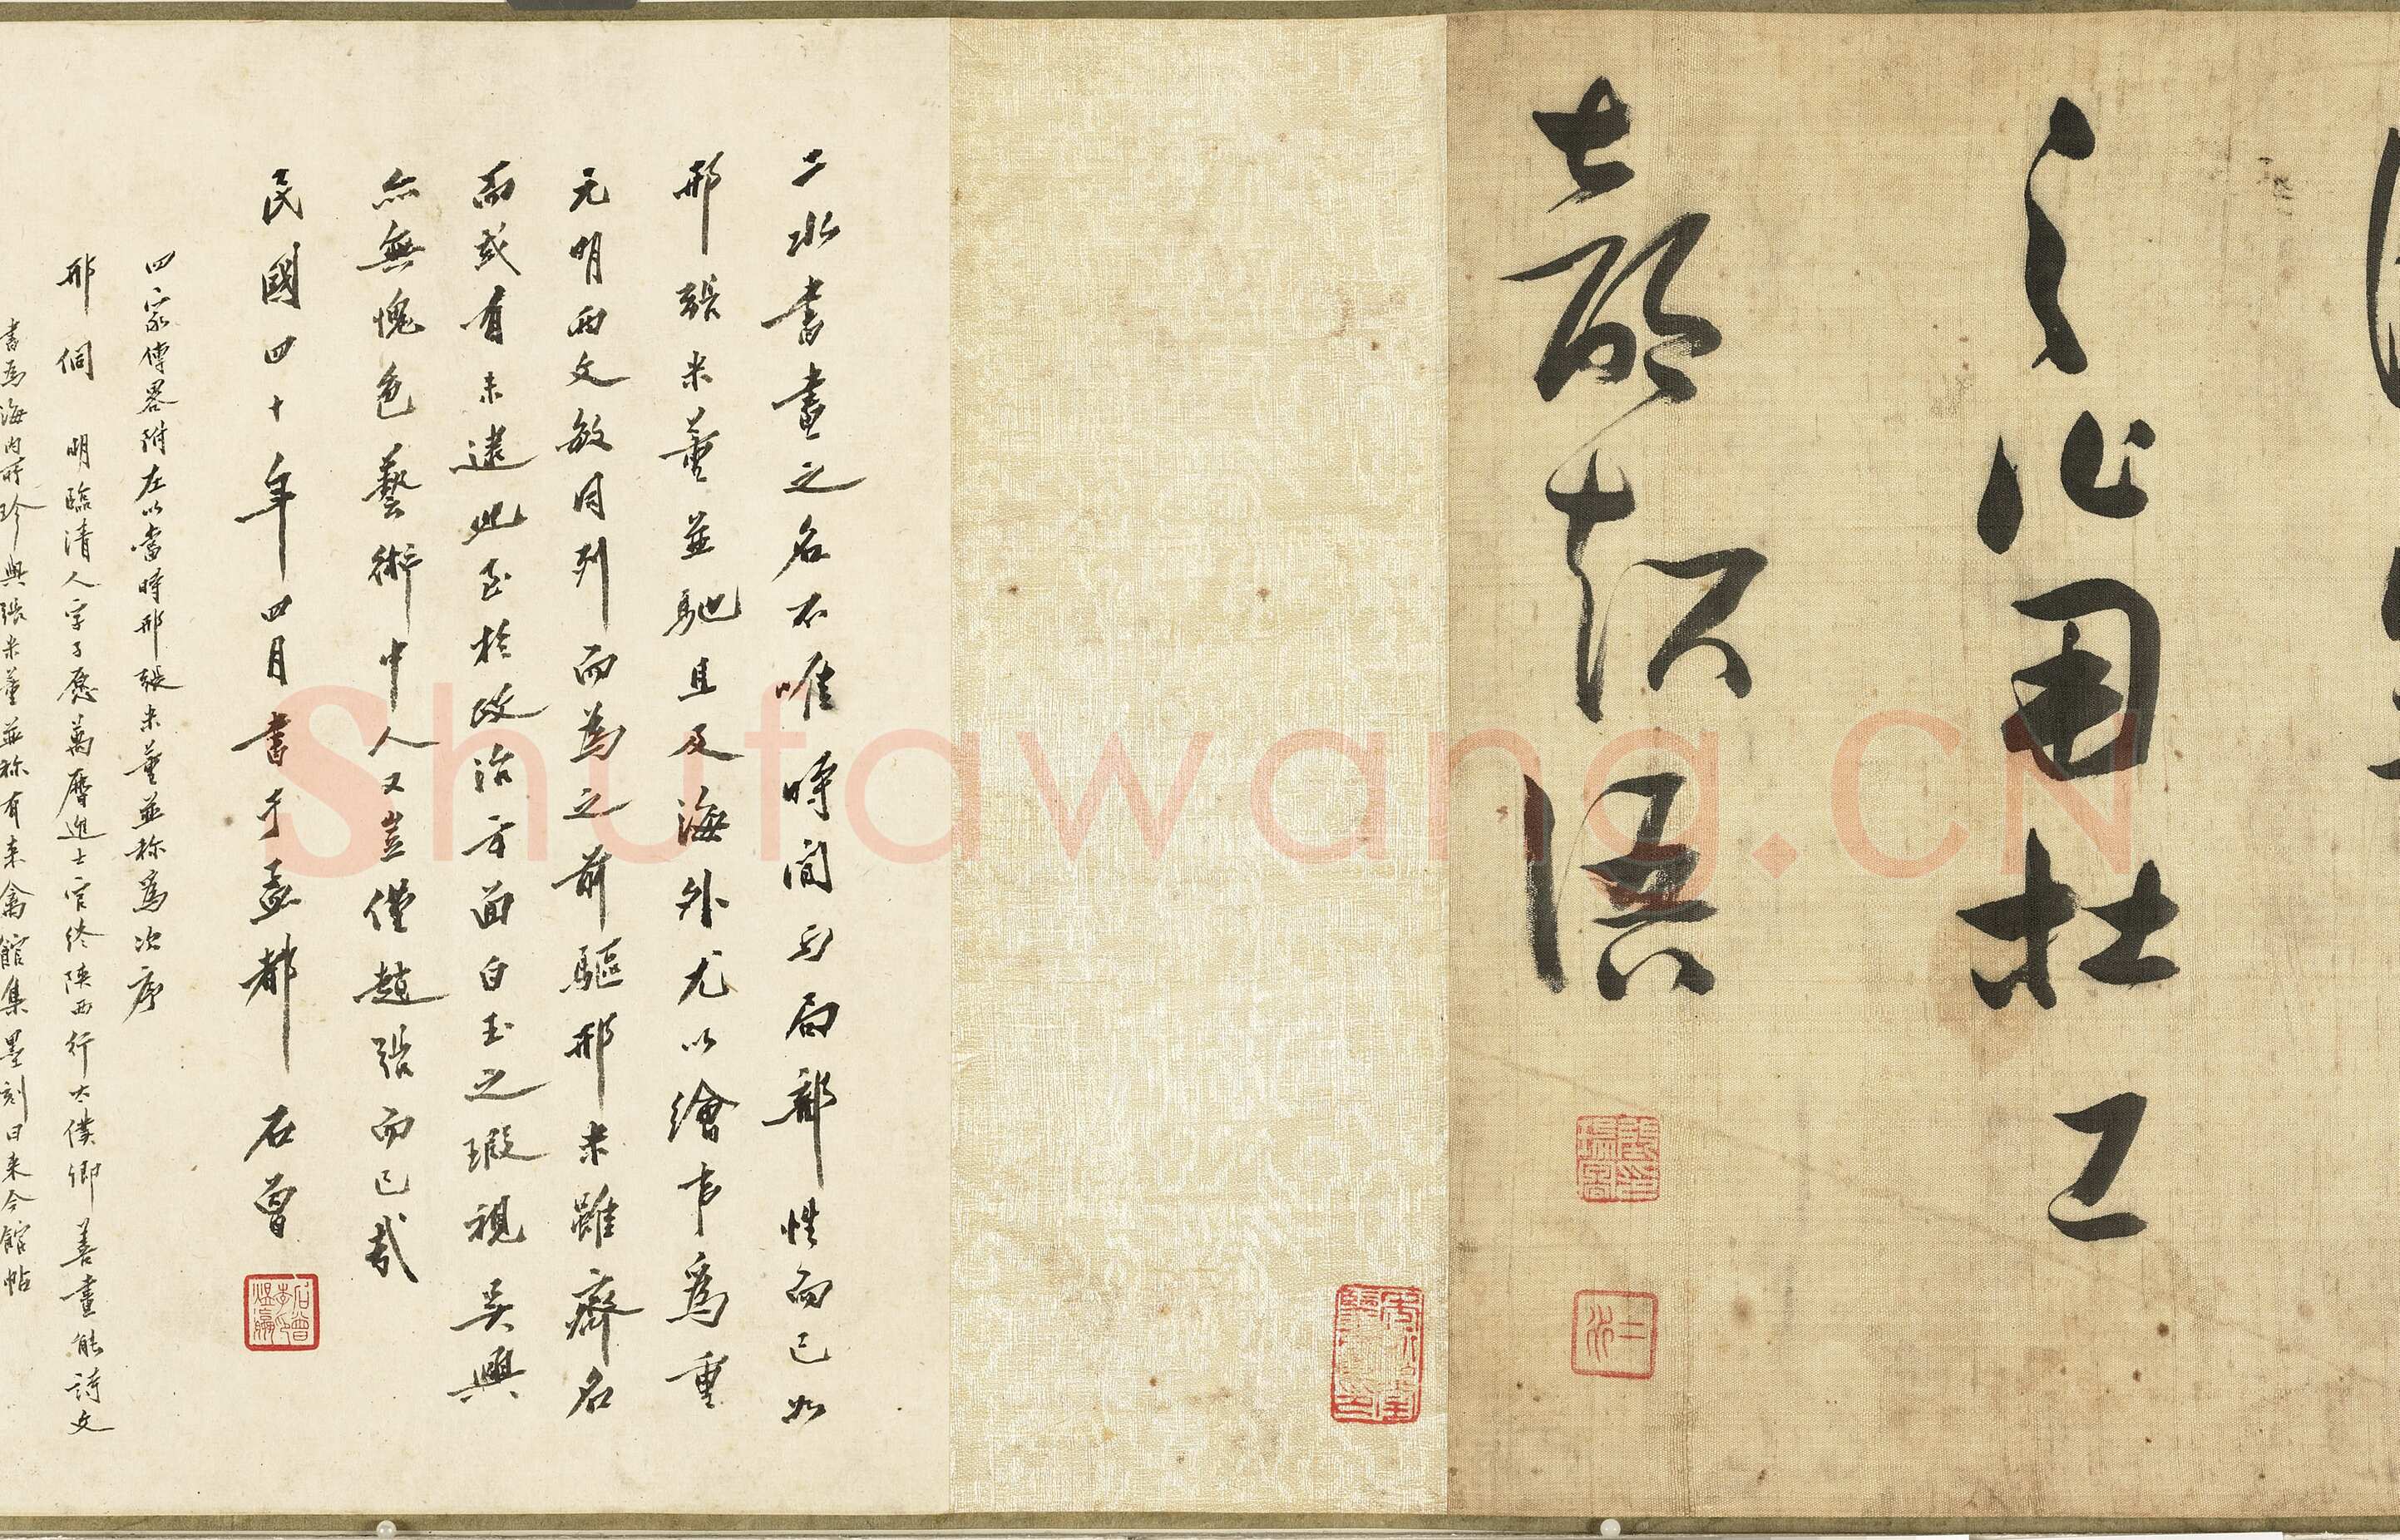 之作用杜工
部起語
二水
二水書畫之名不唯時間與局部性而已如
邢張米董並馳且及海外尤以繪事為重
元明兩文敏同列而為之前驅邢米雖齊名
而或有未逮此至於政治方面白玉之瑕視吳興
亦無愧色藝術中人又豈僅趙張而已哉
民國四十年四月書于孟都 石曾
四家傳畧附左以當時邢張米董並称為次序
邢侗 明臨清人字子愿萬曆進士官終陝西行太僕卿善畫能詩文
書為海內所珍與張米董並称有来禽館集墨刻曰来今館帖
Shufawang.CN